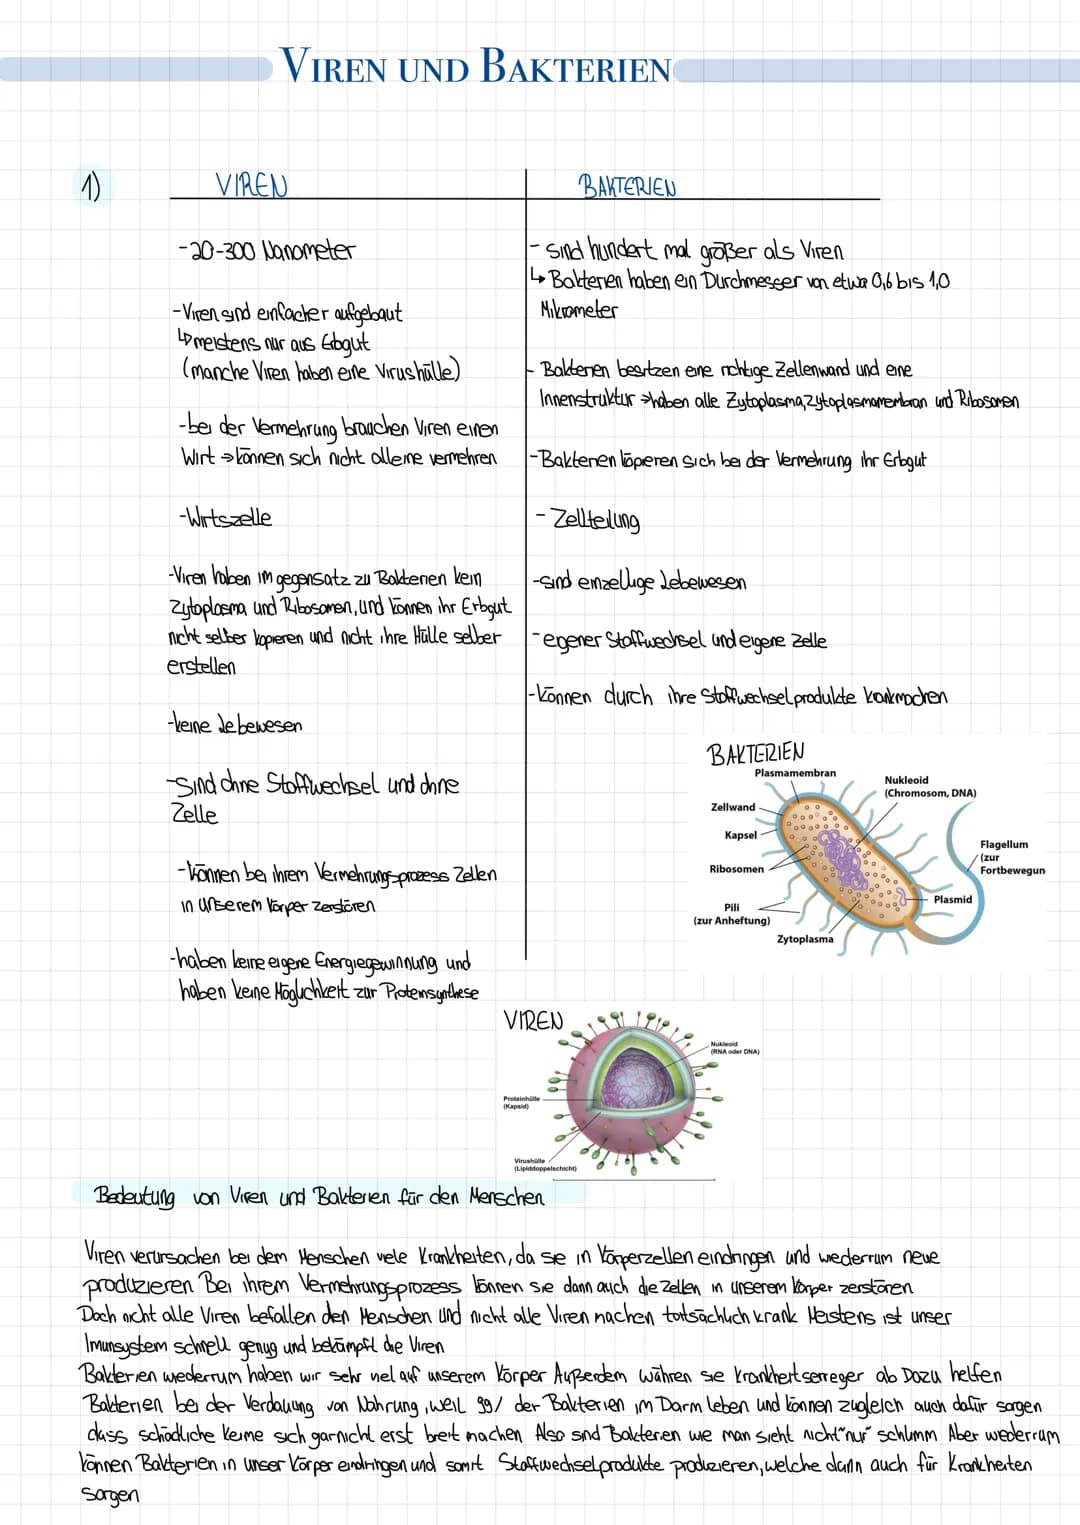 VIREN UND BAKTERIEN
1)
VIREN
-20-300 Nanometer
-Viren sind einfacher aufgebaut
↳meistens nur aus Erbgut
(manche Viren haben eine Virushülle)
-bei der Vermehrung brauchen Viren einen
Wirt →können sich nicht alleine vermehren
-Wirtszelle
-Viren haben im gegensatz zu Bakterien kein
Zytoplasma und Ribosomen, und können ihr Erbgut
nicht selber kopieren und nicht ihre Hülle selber
erstellen
-keine Lebewesen
-Sind ohne Stoffwechsel und ohne
Zelle
-können bei ihrem Vermehrungsprozess Zellen
in unserem Körper zerstören
-haben keine eigene Energiegewinnung und
haben keine Möglichkeit zur Proteinsynthese
BAKTERIEN
- sind hundert mal größer als Viren
↳ Bakterien haben ein Durchmesser von etwa 0,6 bis 1,0
Mikrometer
- Bakterien besitzen eine richtige Zellenwand und eine
Innenstruktur →haben alle Zytoplasma, Zytoplasmamembran und Ribosomen
-Bakterien kopieren sich bei der Vermehrung ihr Erbgut
- Zellteilung
-sind einzellige Lebewesen
-eigener Stoffwechsel und eigene Zelle
-können durch ihre Stoffwechselprodukte krankmachen
BAKTERIEN
Plasmamembran
Nukleoid
(Chromosom, DNA)
Zellwand
Kapsel
Flagellum
(zur
Fortbewegun
Ribosomen
Plasmid
Pili
(zur Anheftung)
Zytoplasma
VIREN
Nukleoid
(RNA oder DNA)
Proteinhülle
(Kapsid)
Virushülle
(Lipiddoppelschicht)
Bedeutung von Viren und Bakterien für den Menschen
Viren verursachen bei dem Menschen viele Krankheiten, da sie in Körperzellen eindringen und wederrum neue
produzieren Bei ihrem Vermehrungsprozess können sie dann auch die Zellen in unserem Körper zerstören
Doch nicht alle Viren befallen den Menschen und nicht alle Viren machen tatsächlich krank Meistens ist unser
Imunsystem schnell genug und bekämpft die Viren
Bakterien wederrum haben wir sehr viel auf unserem Körper Außerdem währen sie Krankheitserreger ab Dazu helfen
Bakterien bei der Verdauung von Nahrung, weil 99% der Bakterien im Darm leben und können zugleich auch dafür sorgen
dass schädliche Keime sich garnicht erst breit machen Also sind Bakterien wie man sieht nicht "nur" schlimm Aber wederrum
können Bakterien in unser Körper eindringen und somit Stoffwechselprodukte produzieren, welche dann auch für Krankheiten
sorgen